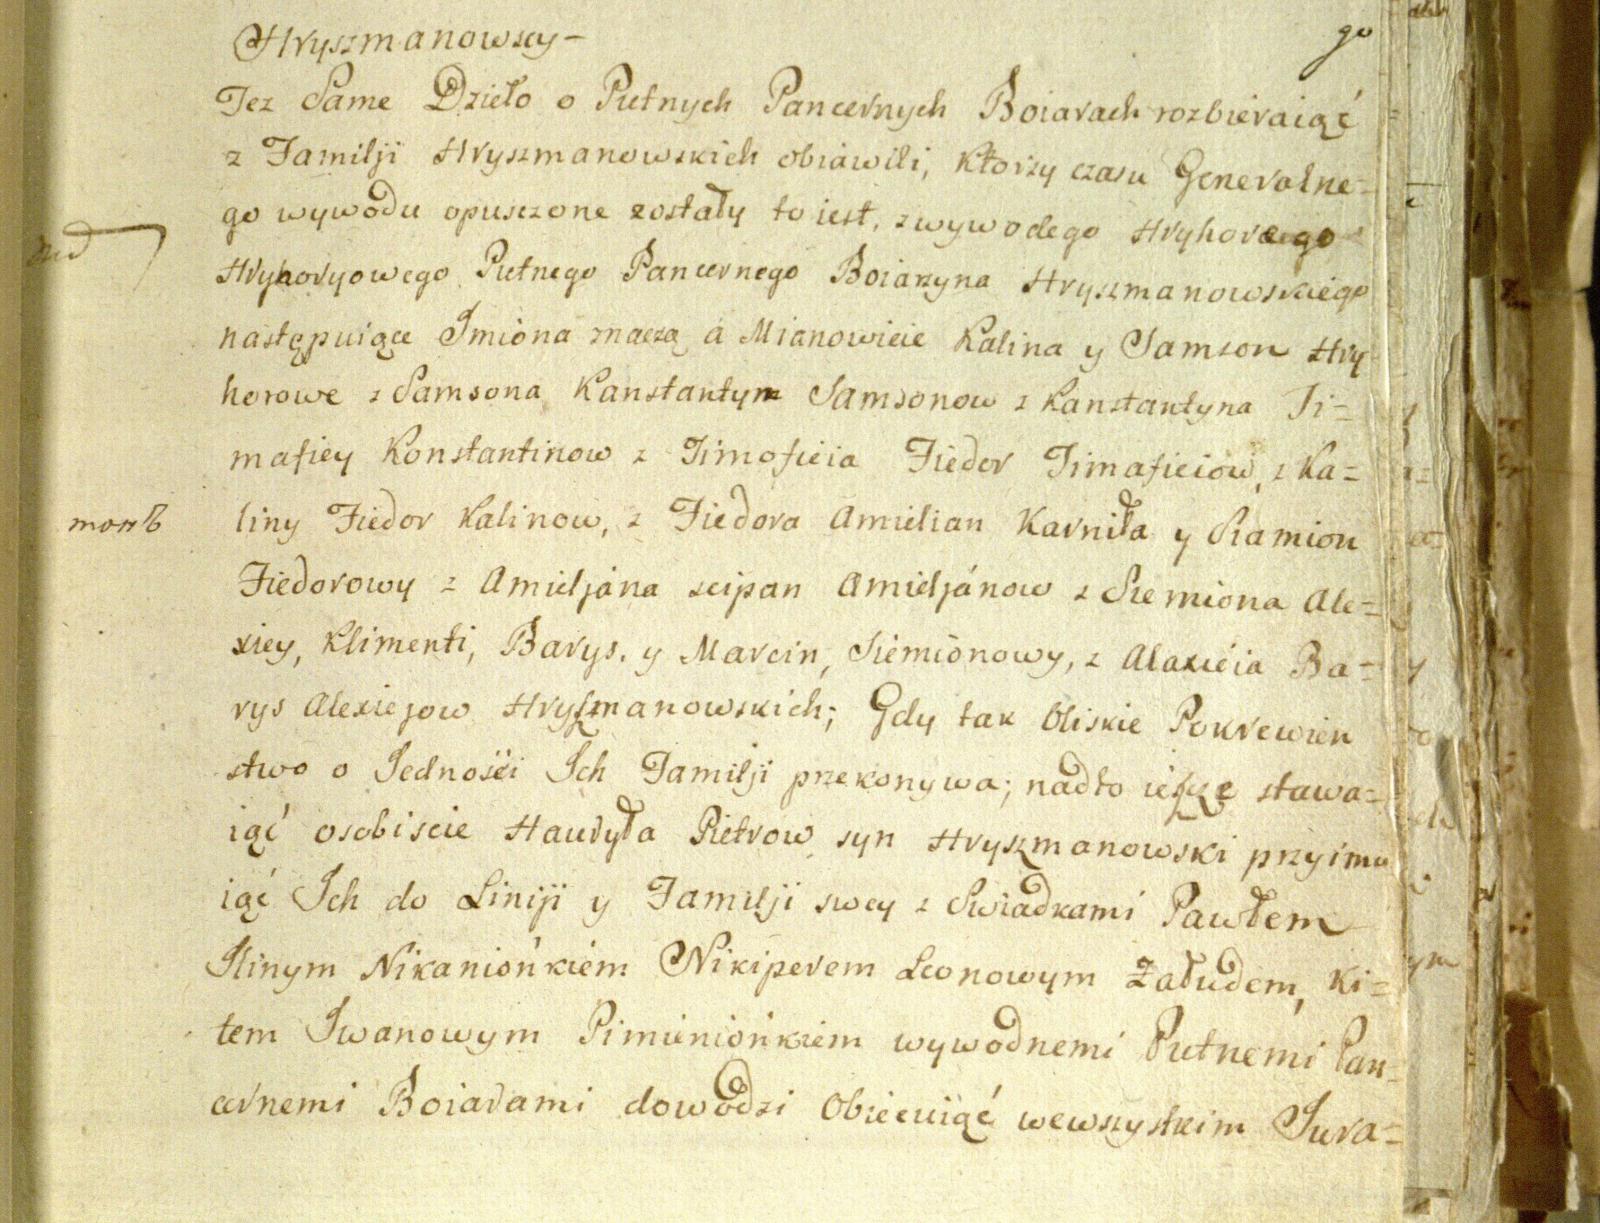 Hryszmanowscy –
go
Tez Same Dzieło o Putnych Pancernych Boiarach rozbieraiąć
z Familji Hryszmanowskich obiawili, Ktorzy czasu Generalne=
go wywodu opuszczone zostały to iest, z wywodego Hryhorego
Hryhoryowego Putnego Pancernego Boiarzyna Hryszmanowskiego
następuiące Imiona znaczą a Mianowicie Kalina y Samson Hry
horowe z Samsona Kanstantym Samsonow z Kanstantyna Ti=
mafiey Konstantinow z Timofieia Fiedor Timafieiow, z Ka=
liny Fiedor Kalinow, z Fiedora Amielian Karniła y Siamion
Fiedorowy z Amieljána scipan Amieljánow z Siemiona Ale=
xiey, Klimenti, Barys. y Marcin, Siemionowy, z Alaxieia Ba=
rys Alexiejow Hryszmanowskich; Gdy tak bliskie Pokrewien
stwo o Jednośći Ich Familji przekonywa; nadto ieszcze stawa=
iąć osobiscie Hauryła Pietrow syn Hryszmanowski przyimu
iąć Ich do Liniji y Familji swey z Swiadkami Pawłem
Ilinym Nikaniońkiém Nikiperem Leonowym Załudem, Ki=
tem Iwanowym Pimieniońkiem wywodnemi Putnemi Pan=
cernemi Boiarami dowodzi Obiecuiąć wewszystkim Jura=